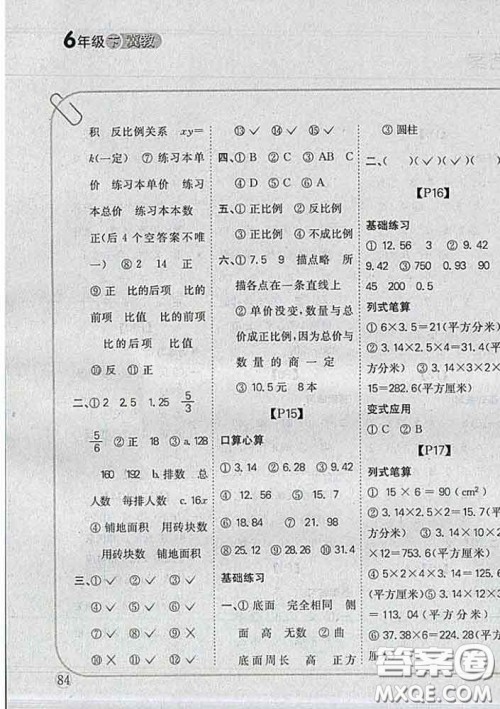 6年级 下 冀教
积 反比例关系 xy=
k(一定) ⑦ 练习本单
价 练习本单价 练习
本总价 练习本本数
正(后 4 个空答案不唯
一) ⑧ 2 14 正
⑨ 正 比的后项 比的
前项 比值 比的前项
比的后项 比值
⑩ 反 ⑪ 正
二、① 2 2.5 1.25 5/3
5/6 ② 正 18 ③ a. 128
160 192 b. 排数 总
人数 每排人数 c. 16x
④ 铺地面积 用砖块数
用砖块数 铺地面积
三、① ✓ ② ✓ ③ ✓
④ ✓ ⑤ ✓ ⑥ ✓
⑦ ✓ ⑧ ✓ ⑨ ✓
⑩ × ⑪ ✓ ⑫ ✓
84
⑬ ✓ ⑭ ✓ ⑮ ✓
四、① B ② C ③ ABC
④ B ⑤ A ⑥ B ⑦ C
五、① 正比例 ② 反比例
③ 正比例 ④ 不成比例
六、① 7.5 9 描点略 所
描各点在一条直线上
② 单价没变,数量与总
价成正比例,因为总价与
数量的商一定
③ 10.5元 8本
【P15】
口算心算
① 3.14 ② 6.28 ③ 9.42
④ 12.56 ⑤ 15.7
⑥ 18.84 ⑦ 21.
⑧ 25.12 ⑨ 28.26 ⑩ 31.4
基础练习
一、① 底面 完全相同 侧
面 高 无数 ② 曲
底面周长 高 正方
③ 圆柱
二、( )(✓)(✓)(
【P16】
基础练习
① 12.56 3 ② 9.42
9.42 ③ 750 0.93 90
45 200 0.5
列式笔算
① 6×3.5=21(平方分米)
② 3.14×2.5×4=31.4(平
方分米) ③ 3.14×2×3×
15=282.6(平方分米)
变式应用
① C ② B
【P17】
列式笔算
① 15×6=90(cm²)
② 3.14×2×2.5=15.7(平
方分米) ③ 3.14×10×
24=753.6(平方厘米)
④ 5×2×4×3.14=125.6
(平方分米)⑤ 3.14×
=113.04(平方厘米)
⑥ 37.38×6=224.28(平
答案圈
MXQE.COM